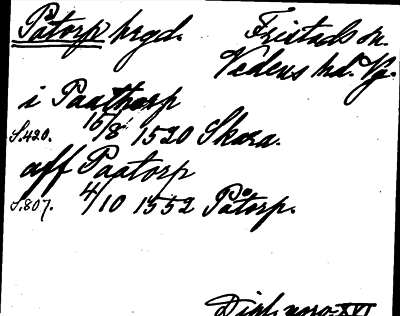 Påtorp hrgd.
Fristads sn.
Vedens hd. Vg.
i Paathorp
S.420. 15/8 1520 Skara.
aff Paatorp
S.807. 4/10 1552 Påtorp.
Dipl. norv. XVI